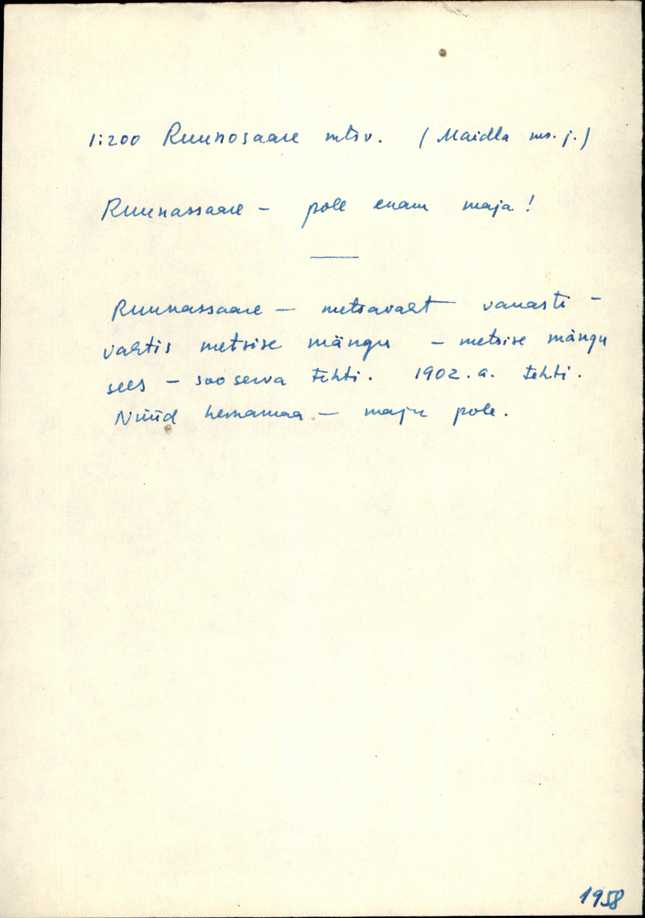 1:200 Ruunosaare mtsv. (Maidla ms. j.)
Ruunassaare – pole enam maja!
Ruunassaare – metsavaht vanasti –
vahtis metsise mängu – metsise mängu
sees – soo serva tehti. 1902. a. tehti.
Nüüd heinamaa – maju pole.
1958